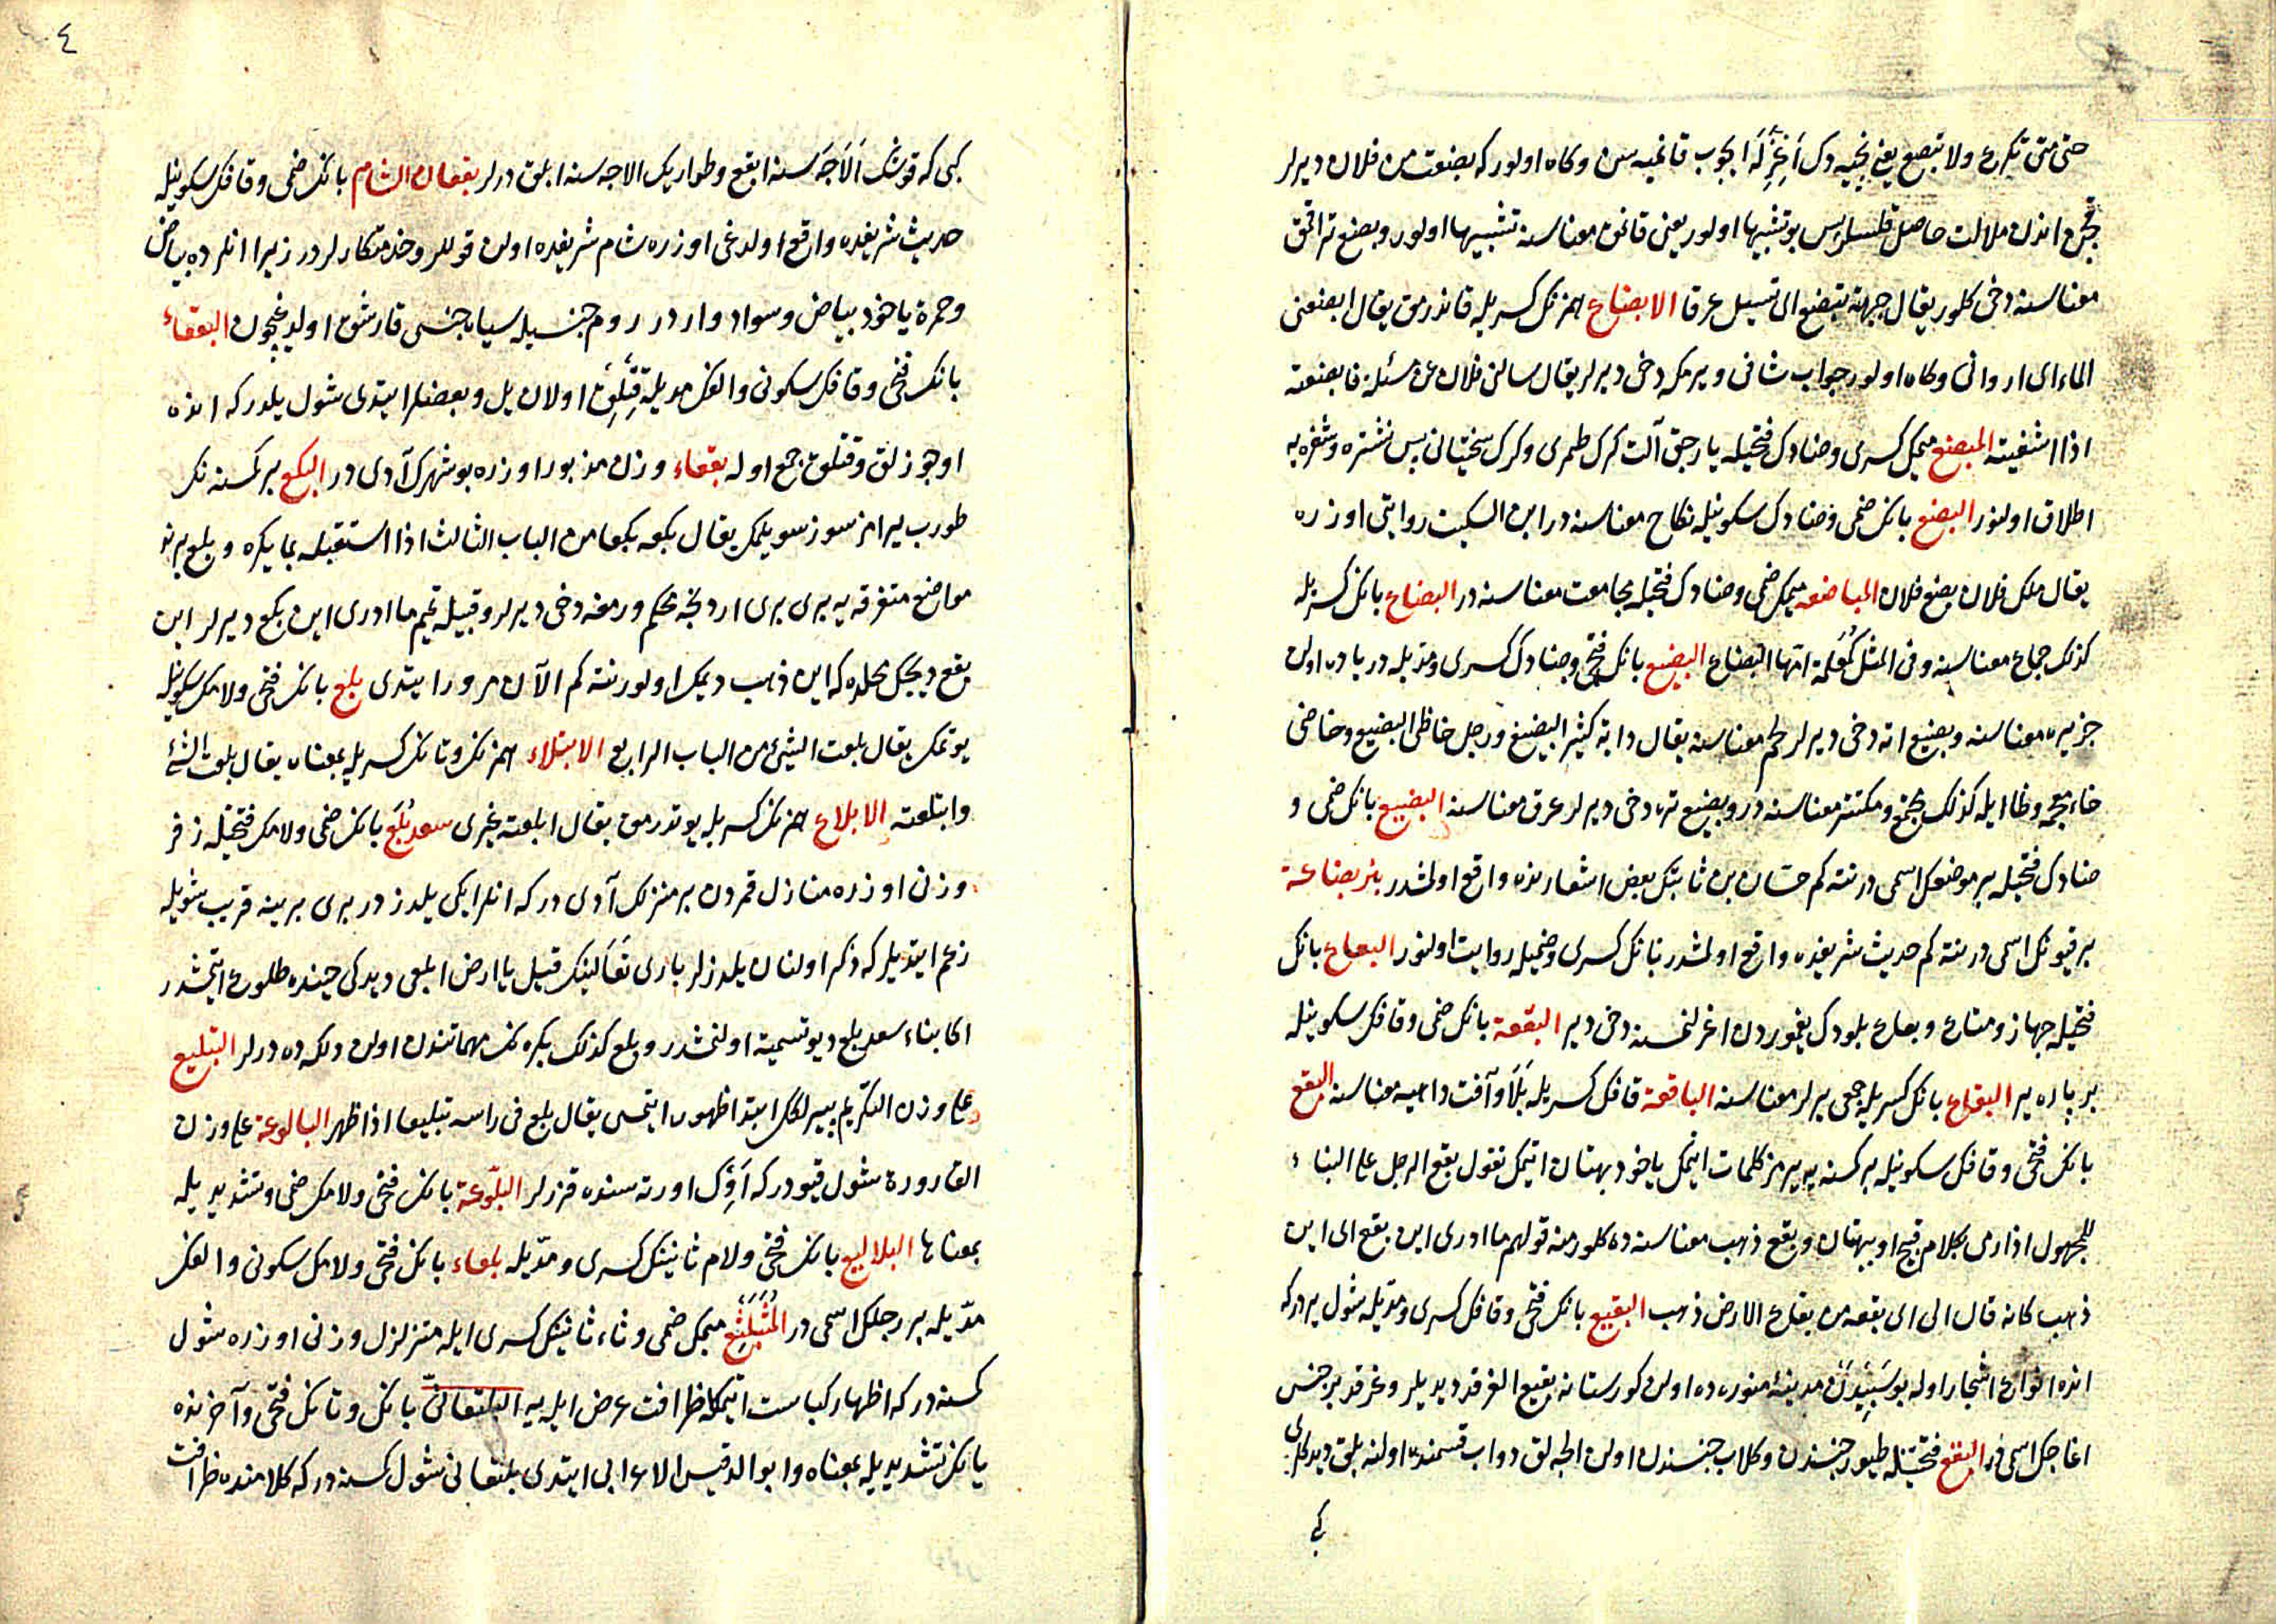 حتى متى تكرع ولا تبضع يعنى نجيه دك اغزله ايجوب قانميه سن وكاه اولور كه بضعت من فلان ديرلر
قچن اندن ملالت حاصل قلسلر پس بو تشبيها اولور يعنى قانمق معناسنه تشبيها اولور وبضع تر اقمق
معناسنه دخى كلور يقال جبهته تبضع اى تسيل عرقا الابضاع همزنك كسريله قاندرمق يقال ابضعنى
الماء اى اروانى وكاه اولور جواب شافى ويرمكه دخى ديرلر يقال سالنى فلان عن مسئلة فابضعته
اذا اشفيته المبضع ميمك كسرى وضادك فتحيله يارجق آلت كرك طمرى وكرك سختيانى پس نشتره وشفره يه
اطلاق اولنور البضع بانك ضمى وضادك سكونيله نكاح معناسنه در ابن السكيت روايتى اوزره
يقال ملك فلان بضع فلان المباضعه ميمك ضمى وضادك فتحيله مجامعت معناسنه در البضاع بانك كسريله
كذلك جماع معناسنه وفى المثل كمعلمة امها البضاع البضيع بانك فتحى وضادك كسرى ومديله درياده اولن
جزيره معناسنه وبضيع اته دخى ديرلر لحم معناسنه يقال دابة كثير البضيع ورجل خاظى البضيع وخاضى
خاء معجمه وظا ايله كذلك ومكتنز معناسنه در وبضيع تره دخى ديرلر عرق معناسنه البضيع بانك ضمى و
ضادك فتحيله بر موضعك اسمى در نته كم حسان بن ثابتك بعض اشعارنده واقع اولمشدر بئر بضاعة
بر قيونك اسمى در نته كم حديث شريفده واقع اولمشدر بانك كسرى وضميله روايت اولنور البعاع بانك
فتحيله جهاز ومتاع وبعاع بلودك يغموردن اغرلنمسنه دخى دير البقعة بانك ضمى وقافك سكونيله
بر پاره ير البقاع بانك كسريله جمعى يرلر معناسنه الباقعة قافك كسريله بلا وآفت داهيه معناسنه البقع
بانك فتحى وقافك سكونيله بر كسنه يه يرمز كلمات ايتمك ياخود بهتان ايتمك تقول بقع الرجل على البناء
للمجهول اذا رمى بكلام قبيح او ببهتان وبقع ذهب معناسنه ده كلور منه قولهم ما ادرى اين بقع اى اين
ذهب كانه قال الى اى بقعه من بقاع الارض ذهب البقيع بانك فتحى وقافك كسرى ومديله شول يردركه
انده انواع اشجار اوله بو سببدن مدينة منوره ده اولن كورستانه بقيع الغرقد ديديلر وغرقد بر جنس
اغاجك اسمى در البقع فتحتيله طيور جنسندن وكلاب جنسندن اولن الجه لق دواب قسمنده اولنه بلق ديدكلرى
كبى
٤
كبى كه قوشك الاجه سنه ابقع وطوارك الاجه سنه ابلق درلر بقعان الشام بانك ضمى وقافك سكونيله
حديث شريفده واقع اولدغى اوزره شام شريفده اولن قوللر وخدمتكارلر در زيرا انلرده بياض
وحمرة ياخود بياض وسواد واردر روم جنسيله سياه جنسى قارشمق اولديغيچون البقعاء
بانك فتحى وقافك سكونى والفك مديله قتلق اولان يل وبعضلر ايتدى شول يلدركه انده
اوجوزلق وقتلق جمع اوله بقعاء وزن مذبور اوزره بو شهرك آدى در البكع بر كمسنه نك
طورب يرامز سوز سويلمك يقال بكعه بكعا من الباب الثالث اذا استقبله بما يكره وبلع برنه
مواضع متفرقه يه برى برى اردنجه محكم ورمغه دخى ديرلر وقبيله تميم ما ادرى اين بكع ديرلر اين
بقع ديجك محلده كه اين ذهب ديمك اولور نته كم الآن مرور ايتدى بلع بانك فتحى ولامك سكونيله
يوتمك يقال بلعت الشئ من الباب الرابع الابتلاء همزنك وتانك كسريله بمعناه يقال بلعت الشئ
وابتلعته الابلاع همزنك كسريله يوتدرمق يقال ابلعته غيرى سعد بلع بانك ضمى ولامك فتحيله زفر
وزنى اوزره منازل قمردن بر منزلك آدى در كه انلر ايكى يلدزدر برى برينه قريب شويله
زعم ايتديلر كه ذكر اولنان يلدزلر بارى تعالينك قيل يا ارض ابلعى ديدكى حينده طلوع ايتمشدر
اكا بناء سعد بلع ديو تسميه اولنمشدر وبلع كذلك بكره نك مهماتندن اولن دلكه ده درلر التبليع
على وزن التكريم پيرلكك ابتدا ظهور ايتمسى يقال بلع فى راسه تبليعا اذا ظهر البالوعة على وزن
القارورة شول قيودركه اوك اورته سنده قزرلر البلوعة بانك فتحى ولامك ضمى وتشديديله
بمعناها البلاليع بانك فتحى ولام ثانينك كسرى ومديله بلعاء بانك فتحى ولامك سكونى والفك
مديله بر رجلك اسمى در المتبلتع ميمك ضمى وثاء ثانينك كسرى ايله متزلزل وزنى اوزره شول
كمسنه در كه اظهار كياست ايتمكله ظرافت عرض ايليه البلتعانى بانك وتانك فتحى وآخرنده
يانك تشديديله بمعناه وابو الدقيس الاعرابى ايتدى بلتعانى شول كمسنه در كه كلامنده ظرافت